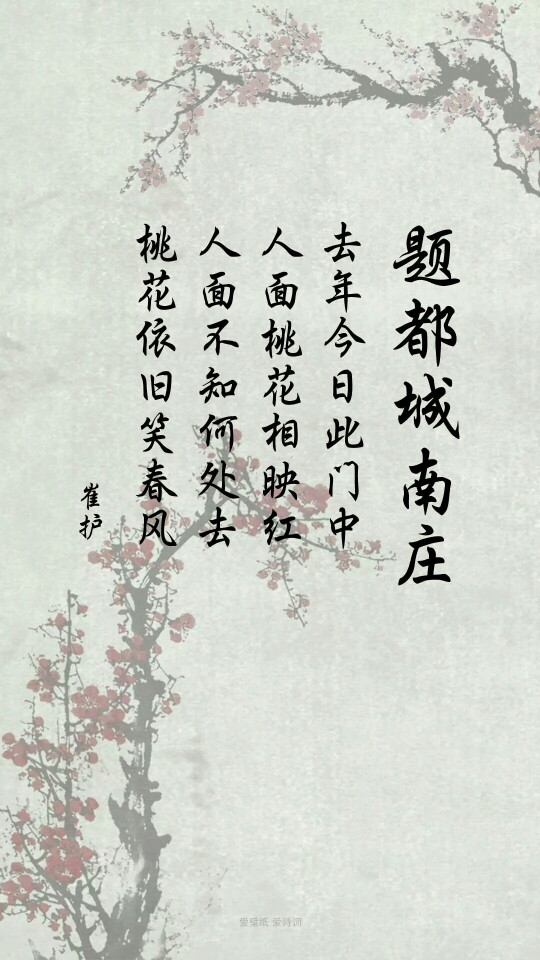 题都城南庄
去年今日此门中
人面桃花相映红
人面不知何处去
桃花依旧笑春风
崔护
爱壁纸 爱诗词